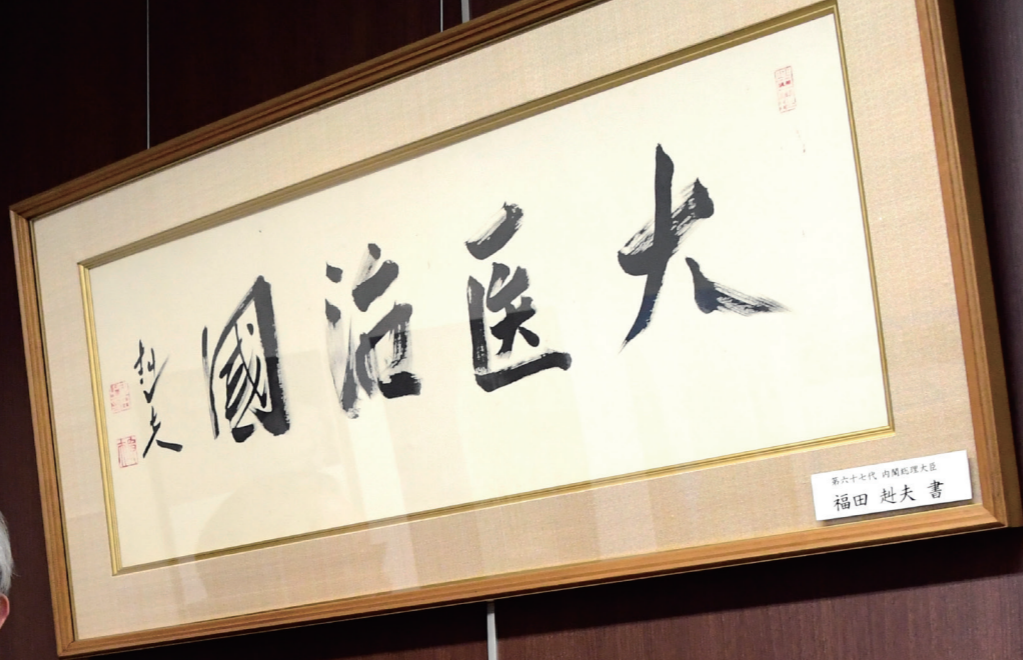 大医治國
赳夫
第六十七代 内閣総理大臣
福田 赳夫 書